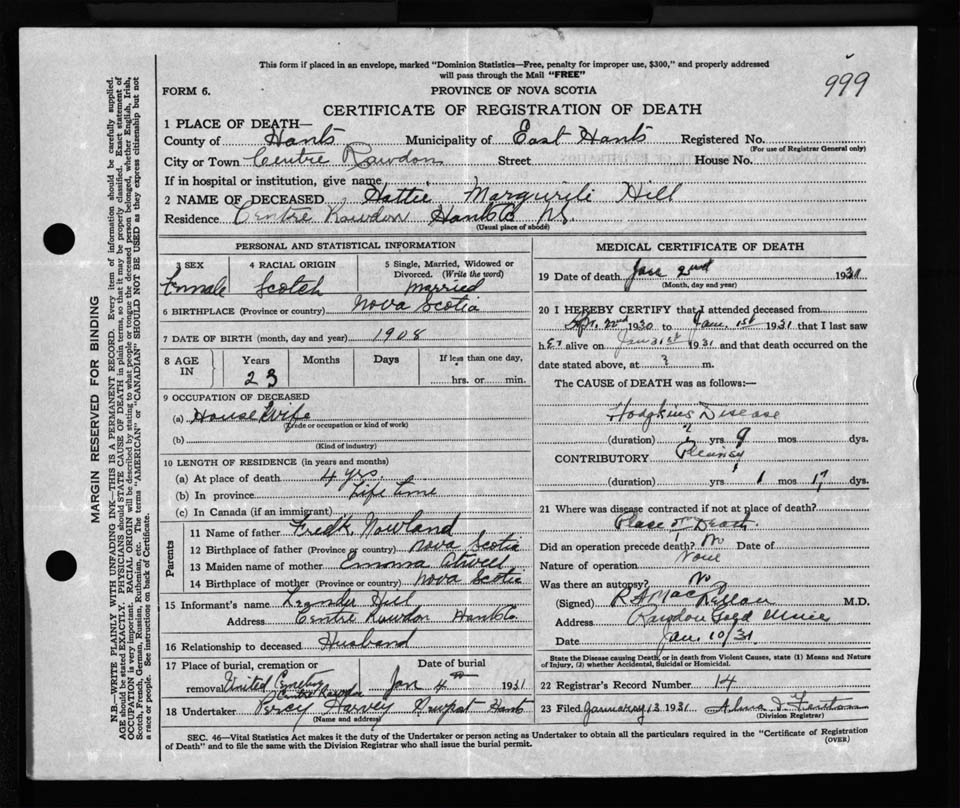 This form if placed in an envelope, marked "Dominion Statistics—Free, penalty for improper use, $300," and properly addressed
will pass through the Mail "FREE"
999
FORM 6.
PROVINCE OF NOVA SCOTIA
CERTIFICATE OF REGISTRATION OF DEATH
1 PLACE OF DEATH—
County of Hants Municipality of East Hants Registered No.
(For use of Registrar General only)
City or Town Centre Rawdon Street House No.
If in hospital or institution, give name
2 NAME OF DECEASED Hattie Hill
Residence Centre Rawdon Hants Co NS.
(Usual place of abode)
PERSONAL AND STATISTICAL INFORMATION
3 SEX 4 RACIAL ORIGIN 5 Single, Married, Widowed or Divorced. (Write the word)
Female Scotch Married
6 BIRTHPLACE (Province or country) Nova Scotia
7 DATE OF BIRTH (month, day and year) 1908
8 AGE IN Years Months Days If less than one day,
23 hrs. or min.
9 OCCUPATION OF DECEASED
(a) House Wife
(Trade or occupation or kind of work)
(b)
(Kind of industry)
10 LENGTH OF RESIDENCE (in years and months)
(a) At place of death 4 yrs.
(b) In province Life time
(c) In Canada (if an immigrant)
Parents
11 Name of father Fredk Nowland
12 Birthplace of father (Province or country) Nova Scotia
13 Maiden name of mother Emma Atwell
14 Birthplace of mother (Province or country) Nova Scotia
15 Informant's name Leander Hill
Address Centre Rawdon Hants Co.
16 Relationship to deceased Husband
17 Place of burial, cremation or Date of burial
removal United Cemetery Centre Rawdon Jan 4th 1931
18 Undertaker Percy Harvey Hants
(Name and address)
MEDICAL CERTIFICATE OF DEATH
19 Date of death Jan 2nd 1931
(Month, day and year)
20 I HEREBY CERTIFY that I attended deceased from
1930 to Jan. 1st 1931 that I last saw
her alive on 1931 and that death occurred on the
date stated above, at 3 m.
The CAUSE of DEATH was as follows:—
Hodgkins Disease
(duration) yrs 9 mos dys.
CONTRIBUTORY Pleurisy
(duration) yrs 1 mos 17 dys.
21 Where was disease contracted if not at place of death?
Place of Death.
Did an operation precede death? No Date of
Nature of operation None
Was there an autopsy? No
(Signed) M.D.
Address Rawdon Gold Mines
Date Jan. 10/31
State the Disease causing Death, or in death from Violent Causes, state (1) Means and Nature
of Injury, (2) whether Accidental, Suicidal or Homicidal.
22 Registrar's Record Number 14
23 Filed January 13 1931 Alma
(Division Registrar)
SEC. 46—Vital Statistics Act makes it the duty of the Undertaker or person acting as Undertaker to obtain all the particulars required in the "Certificate of Registration
of Death" and to file the same with the Division Registrar who shall issue the burial permit.
(OVER)
MARGIN RESERVED FOR BINDING
N.B.—WRITE PLAINLY WITH UNFADING INK—THIS IS A PERMANENT RECORD. Every item of information should be carefully supplied.
AGE should be stated EXACTLY. PHYSICIANS should STATE CAUSE OF DEATH in plain terms, so that it may be properly classified. Exact statement of
OCCUPATION is very important. RACIAL ORIGIN will be described by stating to what people or tongue the deceased person belonged, whether English, Irish,
Scotch, French, German, Russian, Ruthenian, etc. The terms "AMERICAN" or "CANADIAN" SHOULD NOT BE USED as they express citizenship but not
a race or people. See instructions on back of Certificate.